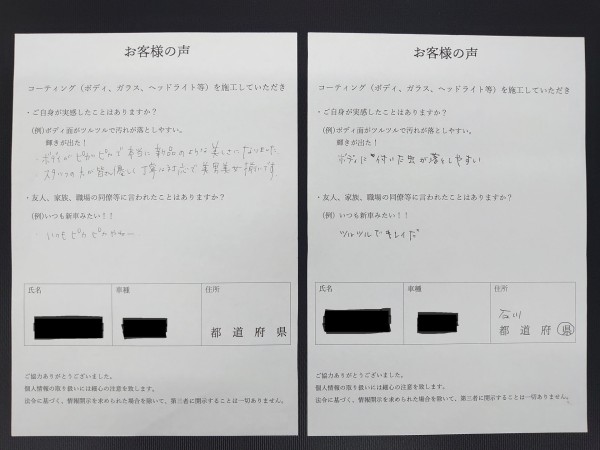 お客様の声
コーティング（ボディ、ガラス、ヘッドライト等）を施工していただき
・ご自身が実感したことはありますか？
(例)ボディ面がツルツルで汚れが落としやすい。
輝きが出た！
・ボディがピカピカで本当に新品のような美しさになりました
・スタッフの方が皆様優しく丁寧な対応で美男美女揃いです
・友人、家族、職場の同僚等に言われたことはありますか？
(例)いつも新車みたい！！
・いつもピカピカやねー
氏名
車種
住所
都 道 府 県
ご協力ありがとうございました。
個人情報の取り扱いには細心の注意を致します。
法令に基づく、情報開示を求められた場合を除いて、第三者に開示することは一切ありません。
お客様の声
コーティング（ボディ、ガラス、ヘッドライト等）を施工していただき
・ご自身が実感したことはありますか？
(例)ボディ面がツルツルで汚れが落としやすい。
輝きが出た！
ボディに付いた虫が落としやすい
・友人、家族、職場の同僚等に言われたことはありますか？
(例) いつも新車みたい！！
ツルツルでキレイだ
氏名
車種
住所
石川
都 道 府 県
ご協力ありがとうございました。
個人情報の取り扱いには細心の注意を致します。
法令に基づく、情報開示を求められた場合を除いて、第三者に開示することは一切ありません。